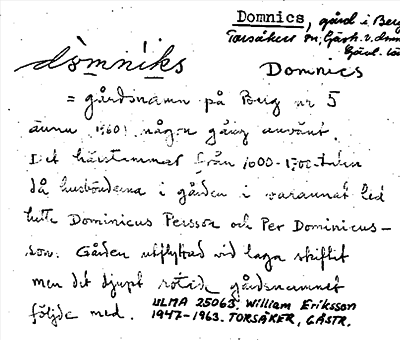 Domnics, gård i Berg
Torsåkers sn, Gästr. v. dms
Gävl. län
dòmniks Domnics
= gårdsnamn på Berg nr 5
ännu 1960! någon gång använt.
Det härstammar från 1600-1700-talen
då husbönderna i gården i varannat led
hette Dominicus Persson och Per Dominicus-
son. Gården utflyttad vid laga skiftet
men det djupt rotade gårdsnamnet
följde med. ULMA 25063. William Eriksson
1947-1963. TORSÅKER, GÄSTR.